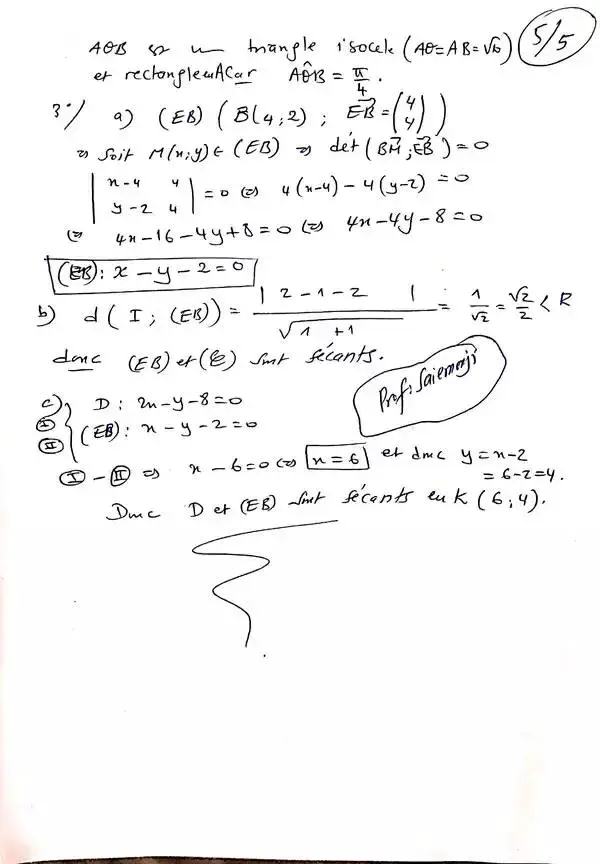 5/5
AOB est un triangle isocele (AO=AB=√10)
et rectangle en A car AÔB = π/4.
3°/ a) (EB) (B(4;2) ; EB→ = (4 4))
⇒ Soit M(x;y) ∈ (EB) ⇒ dét(BM→; EB→) = 0
|x-4 4|
|y-2 4| = 0 ⇔ 4(x-4) - 4(y-2) = 0
⇔ 4x-16-4y+8=0 ⇔ 4x-4y-8=0
(EB): x-y-2=0
b) d(I; (EB)) = |2-1-2| / √1+1 = 1/√2 = √2/2 < R
donc (EB) et (C) sont sécants.
Prof:
c) I D: 2x-y-8=0
II (EB): x-y-2=0
I - II ⇒ x-6=0 ⇔ x=6 et donc y=x-2
=6-2=4.
Donc D et (EB) sont sécants en K (6;4).